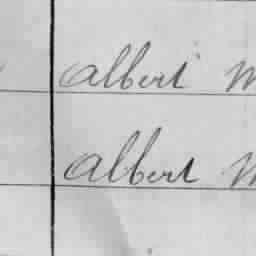 Albert M
Albert M